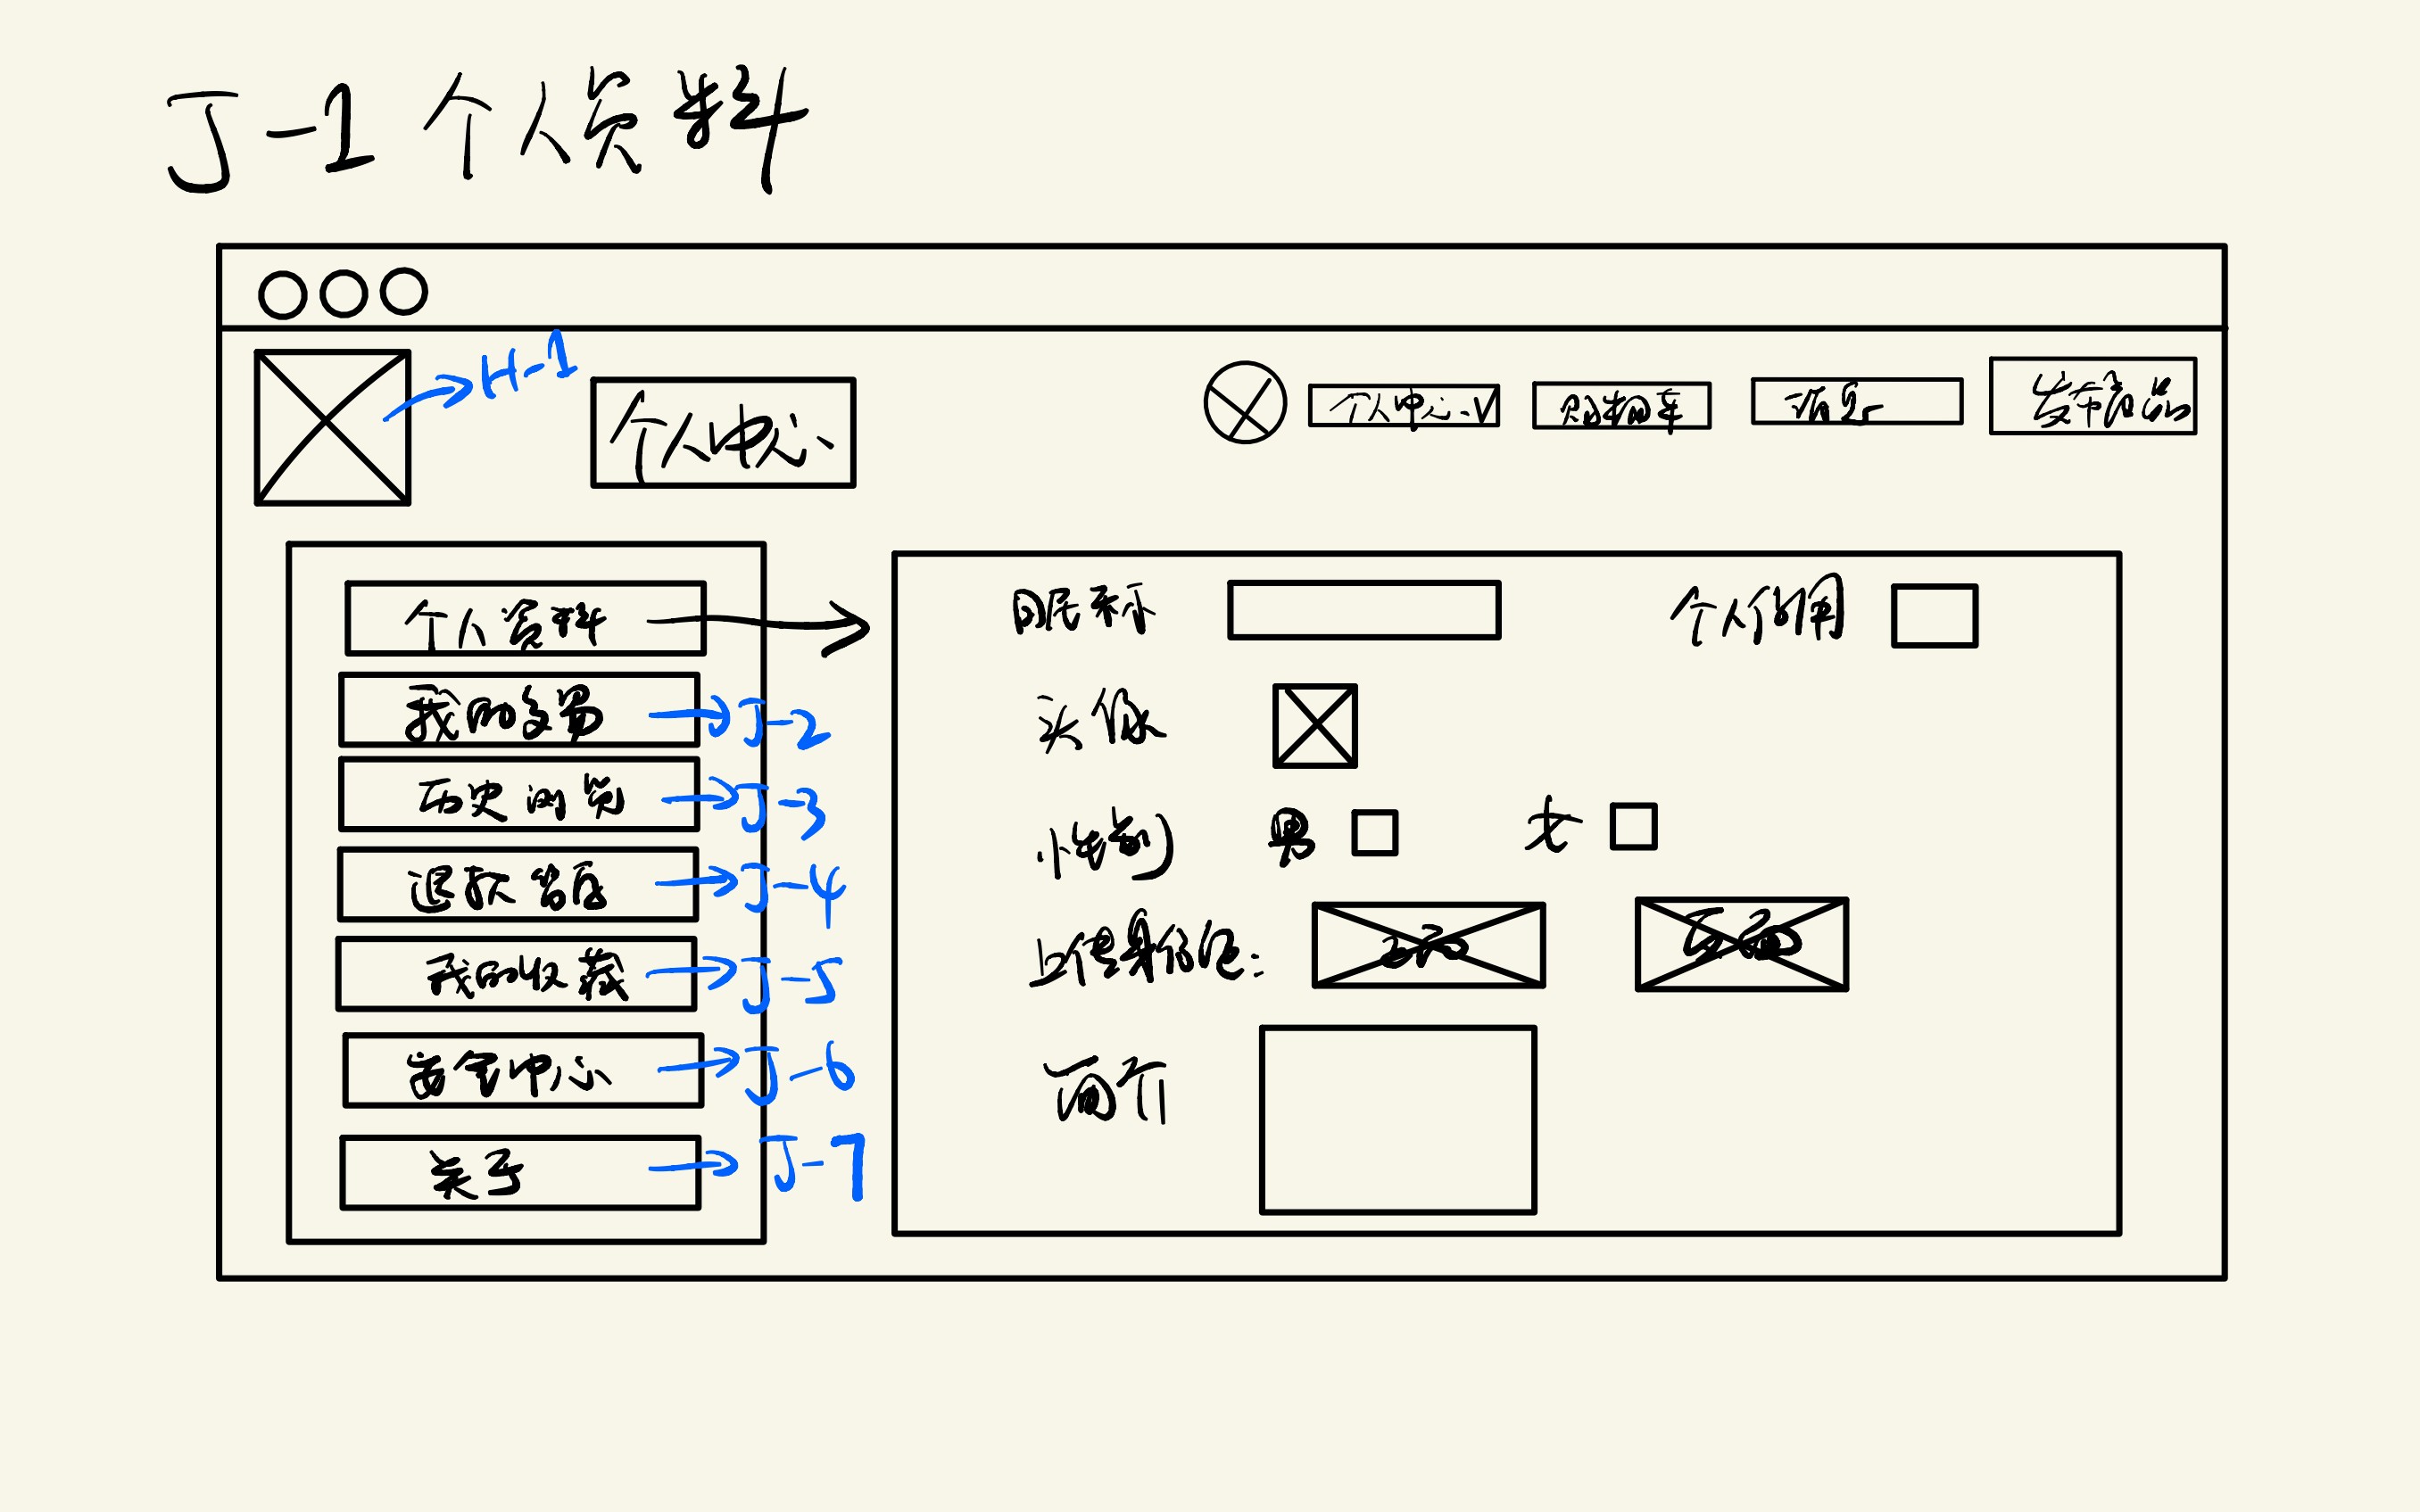 J-1 个人资料
H-1
个人中心
个人中心 购物车 消息 发布商品
个人资料
我的交易 J-2
历史浏览 J-3
退款售后 J-4
我的收藏 J-5
客户中心 J-6
关于 J-7
昵称 个人信用
头像
性别 男 女
上传身份证:
简介